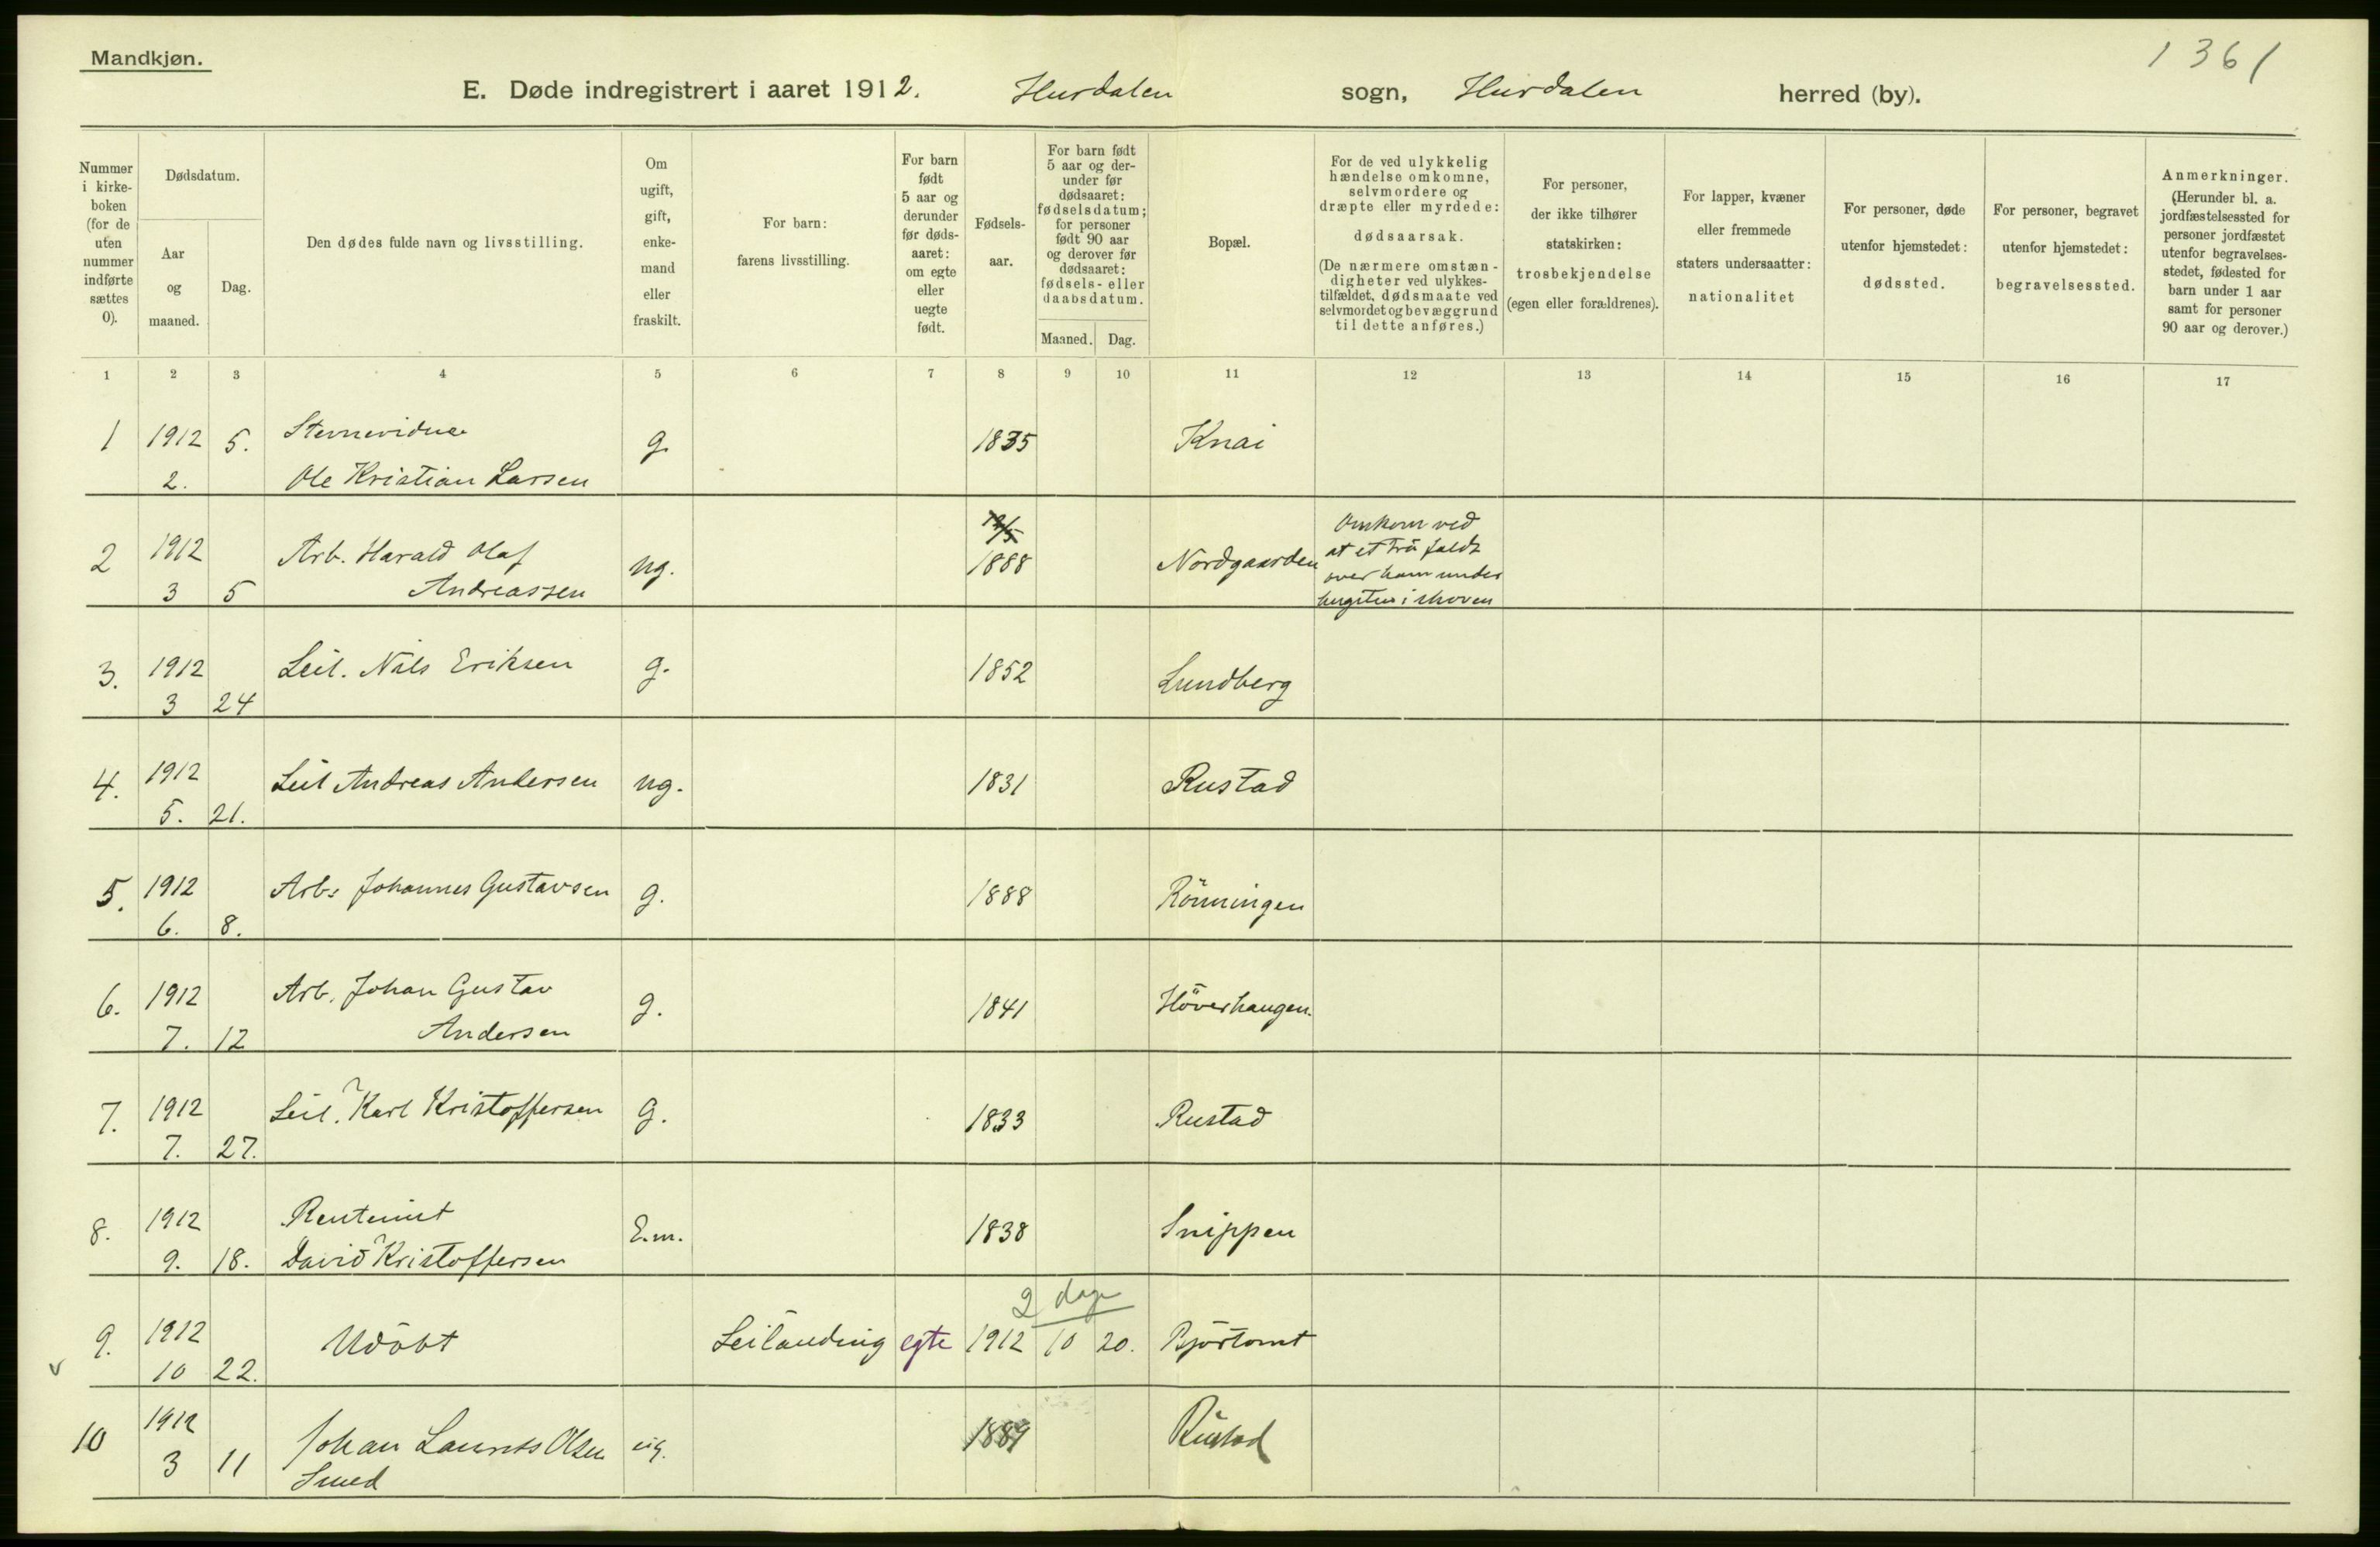 Mandkjøn.
1361
E. Døde indregistrert i aaret 1912. Hurdalen sogn, Hurdalen herred (by).
Nummer
i kirke-
boken
(for de
uten
nummer
indførte
sættes
0).
Dødsdatum.
Aar
og
maaned.
Dag.
Den dødes fulde navn og livsstilling.
Om
ugift,
gift,
enke-
mand
eller
fraskilt.
For barn:
farens livsstilling.
For barn
født
5 aar og
derunder
før døds-
aaret:
om egte
eller
uegte
født.
Fødsels-
aar.
For barn født
5 aar og der-
under før
dødsaaret:
fødselsdatum;
for personer
født 90 aar
og derover før
dødsaaret:
fødsels- eller
daabsdatum.
Maaned. Dag.
Bopæl.
For de ved ulykkelig
hændelse omkomne,
selvmordere og
dræpte eller myrdede:
dødsaarsak.
(De nærmere omstæn-
digheter ved ulykkes-
tilfældet, dødsmaate ved
selvmordet og bevæggrund
til dette anføres.)
For personer,
der ikke tilhører
statskirken:
trosbekjendelse
(egen eller forældrenes).
For lapper, kvæner
eller fremmede
staters undersaatter:
nationalitet
For personer, døde
utenfor hjemstedet:
dødssted.
For personer, begravet
utenfor hjemstedet:
begravelsessted.
Anmerkninger.
(Herunder bl. a.
jordfæstelsessted for
personer jordfæstet
utenfor begravelses-
stedet, fødested for
barn under 1 aar
samt for personer
90 aar og derover.)
1 2 3 4 5 6 7 8 9 10 11 12 13 14 15 16 17
1 1912 5. g. 1835 Knai
2. Ole Kristian Larsen
12/5 Omkom ved
2 1912 Arb. Harald Olaf ug. 1888 Nordgaarden at et træ faldt
over ham under
3 5 Andreassen hugster i skoven
3. 1912 Leil. Nils Eriksen g. 1852 Lundberg
3 24
4. 1912 Leil Andreas Andersen ug. 1831 Rustad
5. 21.
5. 1912 Arb: Johannes Gustavsen g. 1888 Rönningen
6. 8.
6. 1912 Arb. Johan Gustav g. 1841 Höverhaugen.
7. 12 Andersen
7. 1912 Leil. Karl Kristoffersen g. 1833 Rustad
7. 27.
8. 1912 Rentenist E.m. 1838 Snippen
9. 18. David Kristoffersen
2 dage
9. 1912 Udöbt Leilænding egte 1912 10 20. Björtomt
v 10 22.
10 1912 Johan Laurits Olsen ug. 1889 Rustad
3 11 Smed